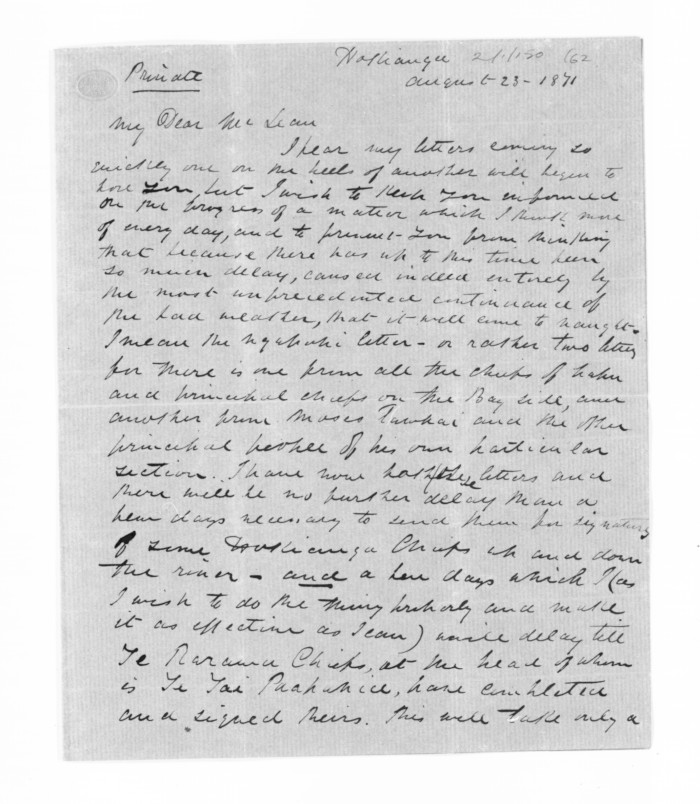 Hokianga 2/1/150 (62
Private
August 23 - 1871
My Dear McLean
I fear my letters coming so
quickly one on the heels of another will begin to
bore you, but I wish to keep you informed
on the progress of a matter which I think more
of every day, and to prevent you from thinking
that because there has up to this time been
so much delay, caused indeed entirely by
the most unprecedented continuance of
the bad weather, that it will come to naught.
I mean the Ngapuhi letter - or rather two letters
for there is one from all the chiefs of
and principal chiefs on the Bay side, and
another from Moses Tawhai and the other
principal people of his own particular
section. I have now both these letters and
there will be no further delay than a
few days necessary to send them for signatures
of some Hokianga Chiefs up and down
the river - and a few days which I (as
I wish to do the thing properly and make
it as effective as I can) will delay till
Te Rarawa Chiefs, at the head of whom
is Te Tai Papahia, have completed
and signed theirs. This will take only a